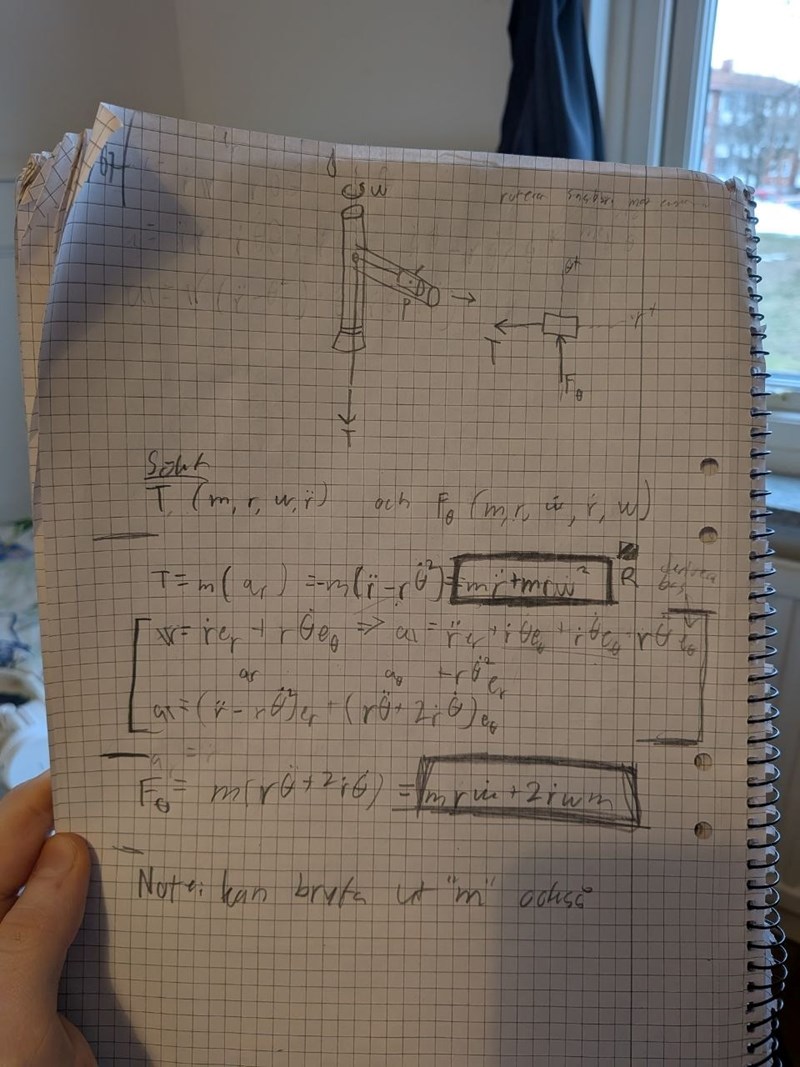 67
ω
P
T
θ+
r+
T
F_θ
Sökt
T (m, r, ω, r̈) och F_θ (m, r, ω̇, ṙ, ω)
T = m(a_r) = -m(r̈ - rθ̇²) = -mr̈ + mrω² R
v = ṙe_r + rθ̇e_θ => a = r̈e_r + ṙθ̇e_θ + ṙθ̇e_θ + rθ̈e_θ
a_r a_θ - rθ̇²e_r
a = (r̈ - rθ̇²)e_r + (rθ̈ + 2ṙθ̇)e_θ
F_θ = m(rθ̈ + 2ṙθ̇) = mrω̇ + 2ṙωm
Note: kan bryta ut "m" också